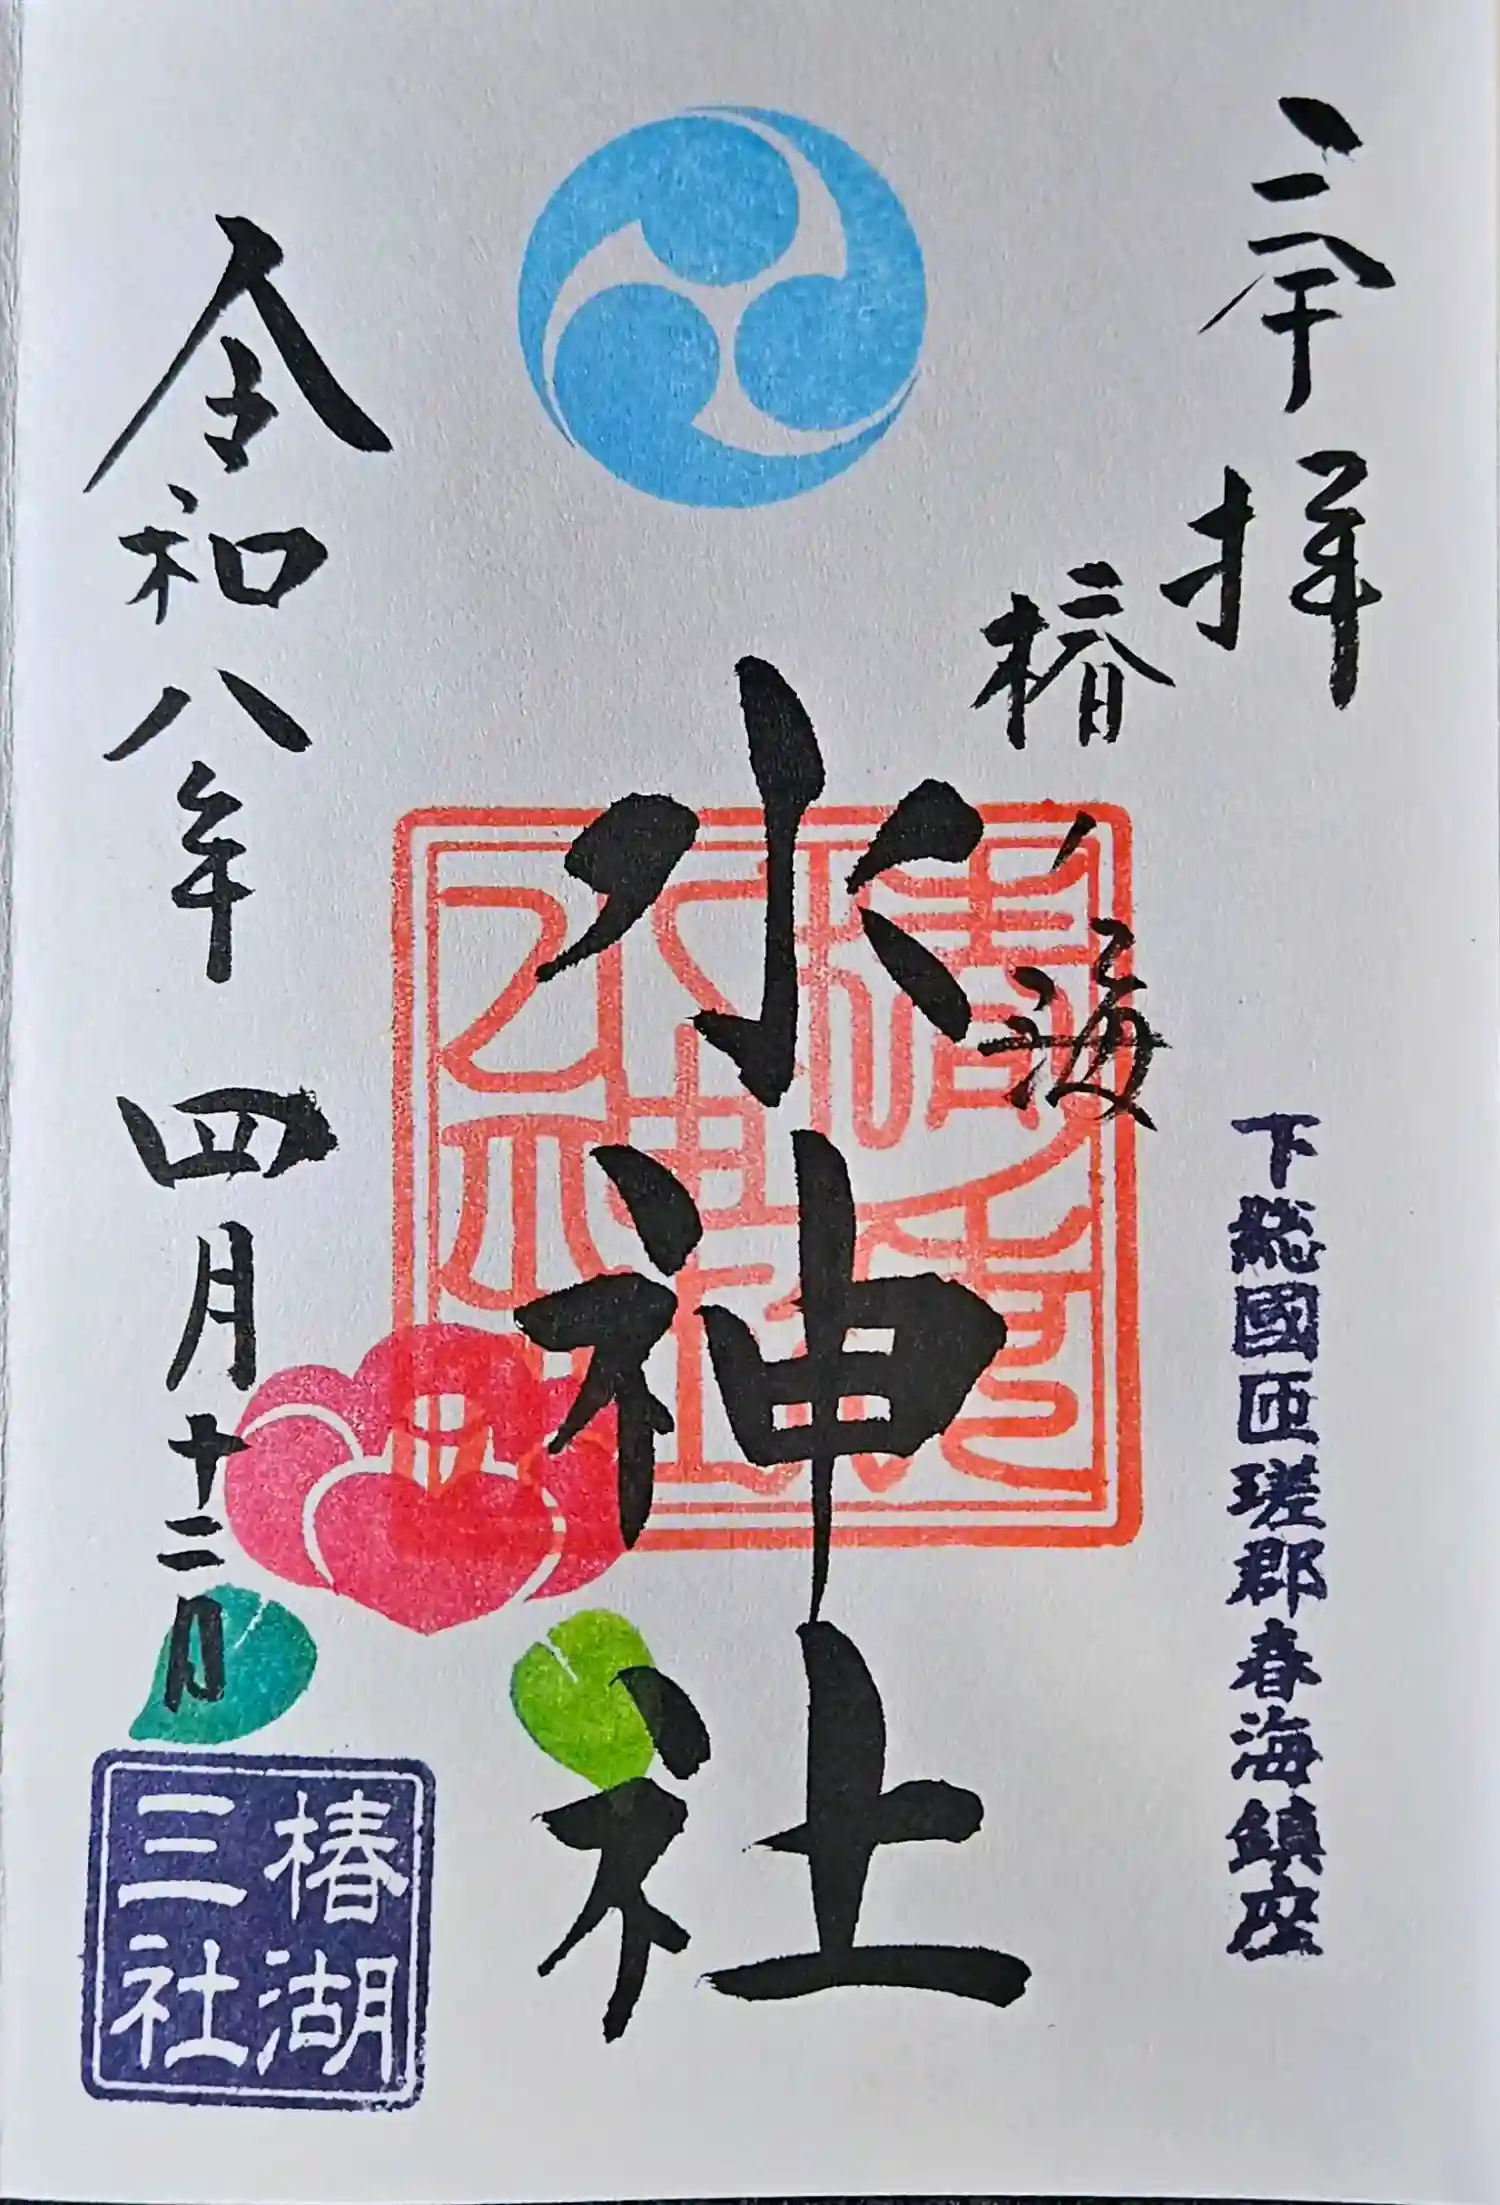 奉拝
下総國匝瑳郡春海鎮座
椿ノ海
水神社
令和八年四月十二日
椿湖
三社